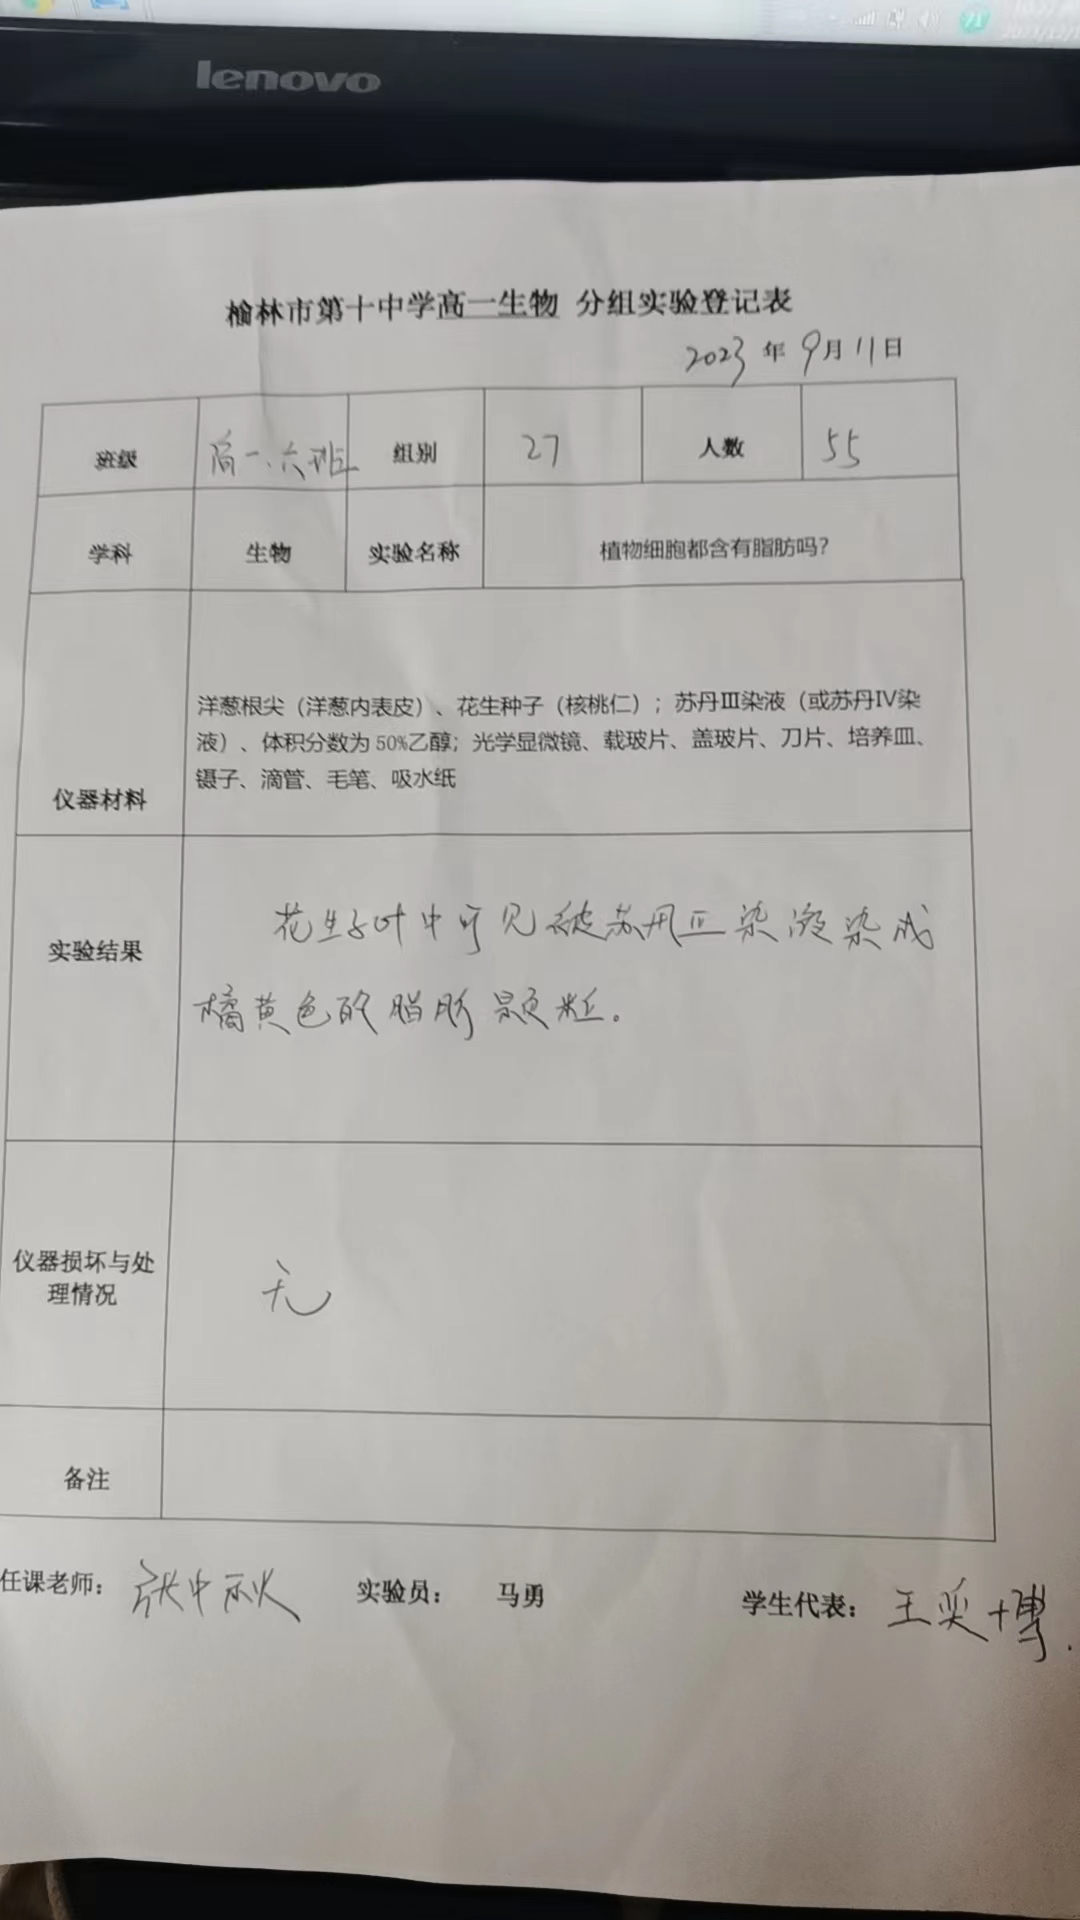 lenovo
榆林市第十中学高一生物 分组实验登记表
2023年9月11日
班级 高一.六班 组别 27 人数 55
学科 生物 实验名称 植物细胞都含有脂肪吗?
仪器材料
洋葱根尖（洋葱内表皮）、花生种子（核桃仁）；苏丹Ⅲ染液（或苏丹Ⅳ染
液）、体积分数为50%乙醇；光学显微镜、载玻片、盖玻片、刀片、培养皿、
镊子、滴管、毛笔、吸水纸
实验结果
花生子叶中可见被苏丹Ⅲ染液染成
橘黄色的脂肪颗粒。
仪器损坏与处
理情况
无
备注
任课老师： 张中秋 实验员： 马勇 学生代表： 王奕博.